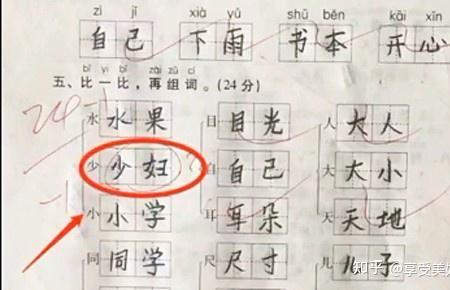 zì jǐ xià yǔ shū běn kāi xīn
自己 下雨 书本 开心
bǐ yi bǐ zài zǔ cí
五、比一比,再组词。(24分)
水 水果 目 目光 人 大人
少 少妇 自 自己 大 大小
小 小学 耳 耳朵 天 天地
同 同学 尺 尺寸 儿 儿子
24-1
-1
知乎 @享受美